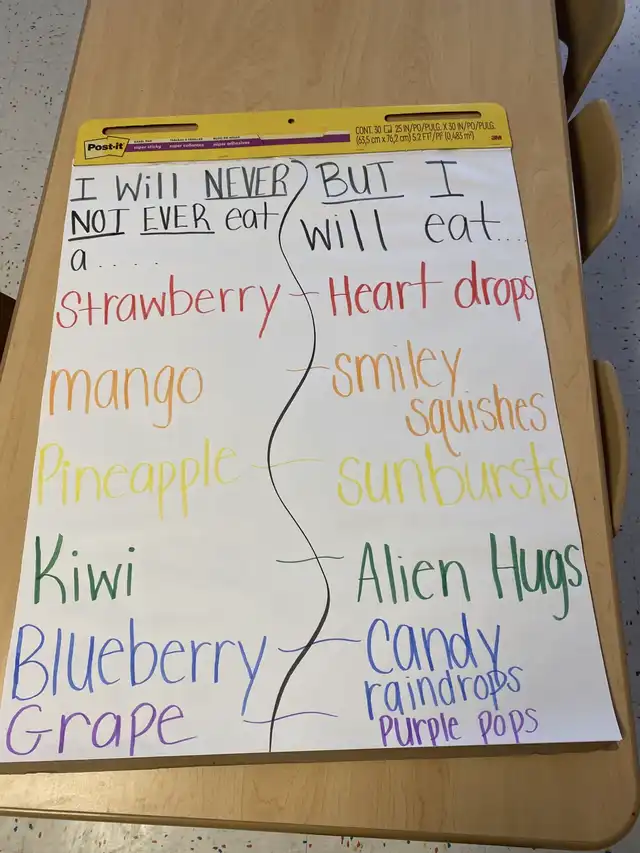 Post-it
super sticky
super collantes
super adhesivas
CONT. 30 25 IN/PO/PULG. X 30 IN/PO/PULG.
(63,5 cm x 76,2 cm) 5.2 FT²/PI² (0,485 m²)
3M
I Will NEVER
NOT EVER eat
a.....
BUT I
will eat...
Strawberry
Heart drops
mango
smiley
squishes
Pineapple
sunbursts
Kiwi
Alien Hugs
Blueberry
Candy
raindrops
Grape
Purple Pops